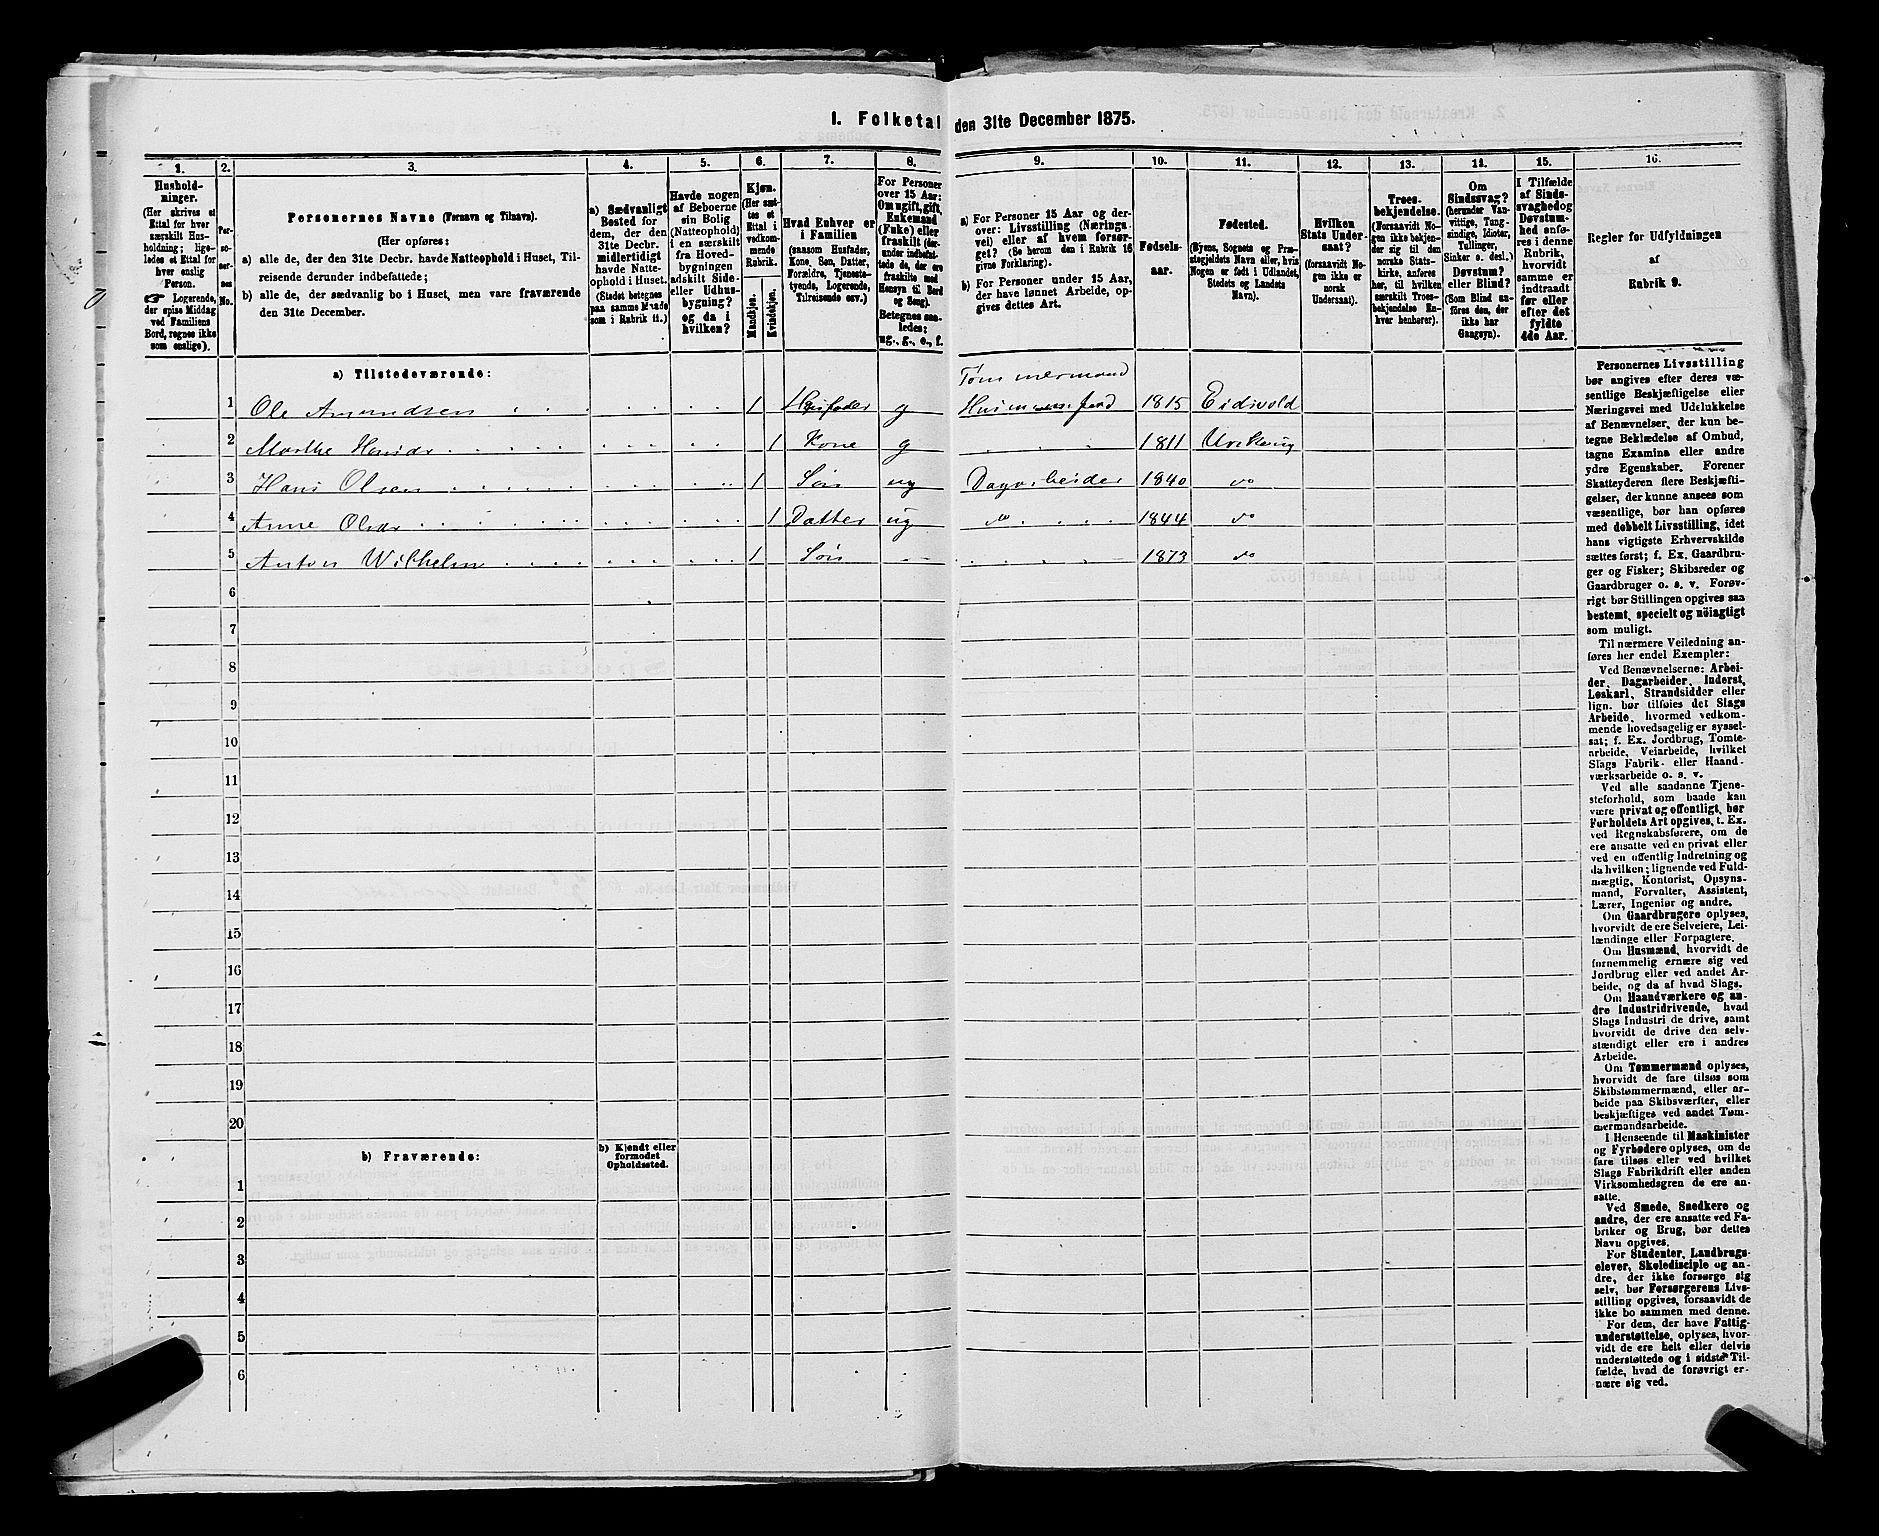 1. Folketal den 31te December 1875.
1. 2. 3. 4. 5. 6. 7. 8. 9. 10. 11. 12. 13. 14. 15. 16.
Hushold-
ninger.
(Her skrives et
Ettal for hver
særskilt Hus-
holdning; lige-
ledes et Ettal for
hver enslig
Person.
Logerende,
der spise Middag
ved Familiens
Bord, regnes ikke
som enslige).
Per-
so-
ner-
nes
No.
Personernes Navne (Fornavn og Tilnavn).
(Her opføres:
a) alle de, der den 31te Decbr. havde Natteophold i Huset, Til-
reisende derunder indbefattede;
b) alle de, der sædvanlig bo i Huset, men vare fraværende
den 31te December.
a) Sædvanligt
Bosted for
dem, der den
31te Decbr.
midlertidigt
havde Natte-
ophold i Huset.
(Stedet betegnes
paa samme Maade
som i Rubrik 11.)
Havde nogen
af Beboerne
sin Bolig
(Natteophold)
i en særskilt
fra Hoved-
bygningen
adskilt Side-
eller Udhus-
bygning?
og da i
hvilken?
Kjøn.
(Her sæt-
tes et
Ettal i
vedkom-
mende
Rubrik.
Mandkjøn.
Kvindekjøn.
Hvad Enhver er
i Familien
(saasom Husfader,
Kone, Søn, Datter,
Forældre, Tjeneste-
tyende, Logerende,
Tilreisende osv.)
For Personer
over 15 Aar:
Om ugift, gift,
Enkemand
(Enke) eller
fraskilt (der-
under indbefat-
tede de, der ere
fraskilte med
Hensyn til Bord
og Seng).
Betegnes saa-
ledes:
ug., g., e., f.
a) For Personer 15 Aar og der-
over: Livsstilling (Nærings-
vei) eller af hvem forsør-
get? (Se herom den i Rubrik 16
givne Forklaring).
b) For Personer under 15 Aar,
der have lønnet Arbeide, op-
gives dettes Art.
Fødsels-
aar.
Fødested.
(Byens, Sognets og Præ-
stegjeldets Navn eller, hvis
Nogen er født i Udlandet,
Stedets og Landets
Navn).
Hvilken
Stats Under-
saat?
(forsaavidt No-
gen ikke er
norsk
Undersaat).
Troes-
bekjendelse.
(Forsaavidt No-
gen ikke bekjen-
der sig til den
norske Stats-
kirke, anføres
her, til hvilken
særskilt Troes-
bekjendelse En-
hver henhører).
Om
Sindssvag?
(herunder Van-
vittige, Tung-
sindige, Idioter,
Tullinger,
Sinker o. desl.)
Døvstum?
eller Blind?
(Som Blind an-
føres den, der
ikke har
Gangsyn).
I Tilfælde
af Sinds-
svaghed og
Døvstum-
hed anfø-
res i denne
Rubrik,
hvorvidt
samme er
indtraadt
før eller
efter det
fyldte
4de Aar.
Regler for Udfyldningen
af
Rubrik 9.
a) Tilstedeværende:
Tømmermand
1 Ole Amundsen 1 Husfader g 1815 Eidsvold
2 Marthe Hansdr 1 Kone g 1811 Urskoug
3 Hans Olsen 1 Søn ug Dagarbeider 1840 do
4 Anne Olsdr 1 Datter ug do 1844 do
5 Anton Wilhelm 1 Søn 1873 do
6
7
8
9
10
11
12
13
14
15
16
17
18
19
20
b) Fraværende:
b) Kjendt eller
formodet
Opholdssted.
1
2
3
4
5
6
Personernes Livsstilling
bør angives efter deres væ-
sentlige Beskjæftigelse eller
Næringsvei med Udelukkelse
af Benævnelser, der kun be-
tegne Beklædelse af Ombud,
tagne Examina eller andre
ydre Egenskaber. Forener
Skatteyderen flere Beskjæfti-
gelser, der kunne ansees som
væsentlige, bør han opføres
med dobbelt Livsstilling, idet
hans vigtigste Erhvervskilde
sættes først; f. Ex. Gaardbru-
ger og Fisker; Skibsreder og
Gaardbruger o. s. v. Forøv-
rigt bør Stillingen opgives saa
bestemt, specielt og nöiagtigt
som muligt.
Til nærmere Veiledning an-
føres her endel Exempler:
Ved Benævnelserne: Arbei-
der, Dagarbeider, Inderst,
Løskarl, Strandsidder eller
lign. bør tilføies det Slags
Arbeide, hvormed vedkom-
mende hovedsagelig er syssel-
sat; f. Ex. Jordbrug, Tomte-
arbeide, Veiarbeide, hvilket
Slags Fabrik- eller Haand-
værksarbeide o. s. v.
Ved alle saadanne Tjene-
steforhold, som baade kan
være privat og offentligt, bør
Forholdets Art opgives, t. Ex.
ved Regnskabsførere, om de
ere ansatte ved en privat eller
ved en offentlig Indretning og
da hvilken; lignende ved Fuld-
mægtig, Kontorist, Opsyns-
mand, Forvalter, Assistent,
Lærer, Ingeniør og andre.
Om Gaardbrugere oplyses,
hvorvidt de ere Selveiere, Lei-
lændinge eller Forpagtere.
Om Husmænd, hvorvidt de
fornemmelig ernære sig ved
Jordbrug eller ved andet Ar-
beide, og da af hvad Slags.
Om Haandværkere og an-
dre Industridrivende, hvad
Slags Industri de drive, samt
hvorvidt de drive den selv-
stændigt eller ere i andres
Arbeide.
Om Tømmermænd oplyses,
hvorvidt de fare tilsøs som
Skibstømmermænd, eller ar-
beide paa Skibsværfter, eller
beskjæftiges ved andet Tøm-
mermandsarbeide.
I Henseende til Maskinister
og Fyrbødere oplyses, om de
fare tilsøs eller ved hvilket
Slags Fabrikdrift eller anden
Virksomhedsgren de ere an-
satte.
Ved Smede, Snedkere og
andre, der ere ansatte ved Fa-
briker og Brug, bør dettes
Navn opgives.
For Studenter, Landbrugs-
elever, Skoledisciple og an-
dre, der ikke forsørge sig
selv, bør Forsørgerens Livs-
stilling opgives, forsaavidt de
ikke bo sammen med denne.
For dem, der have Fattig-
understøttelse, oplyses, hvor-
vidt de ere helt eller delvis
understøttede og i sidste Til-
fælde, hvad de forøvrigt er-
nære sig ved.